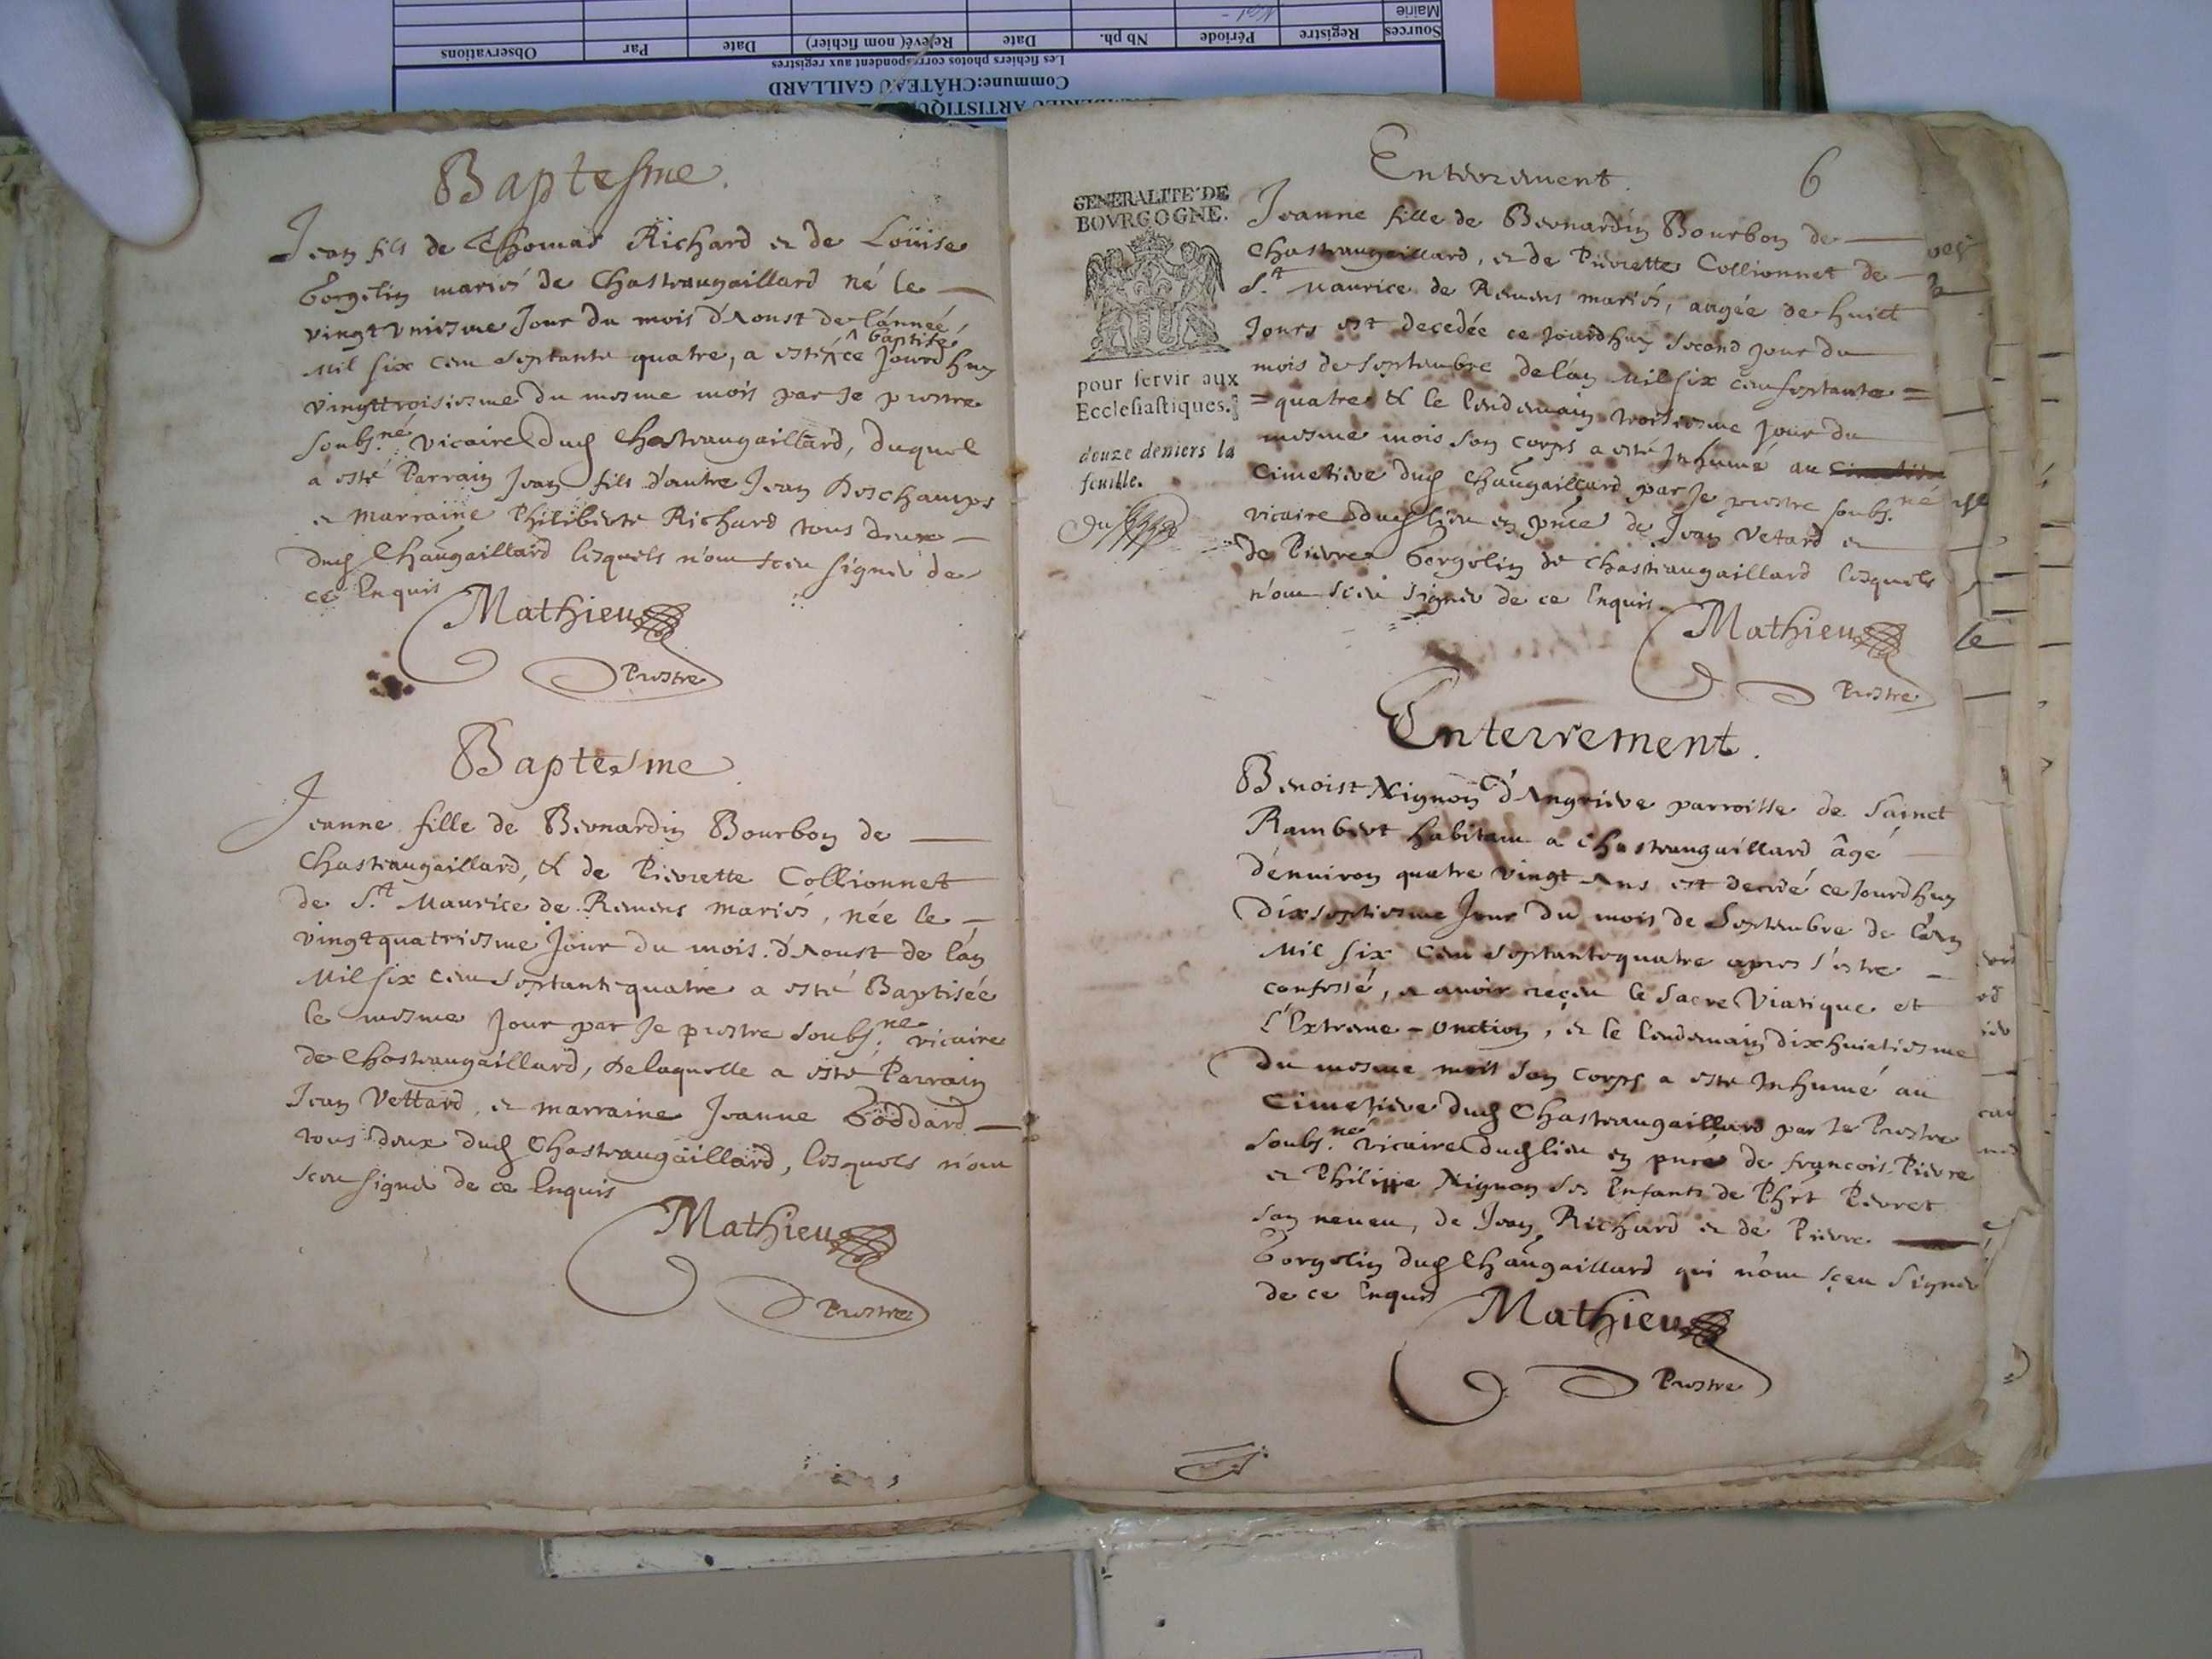 Sources Registre Période Nb ph. Date Relevé( nom fichier) Date Par Observations
Mairie
Les fichiers photos correspondent aux registres
Commune:CHÂTEAU GAILLARD
Baptesme.
Jean fils de Thomas Richard et de Loüise
Gorgelin mariés de Chasteaugaillard né le —
vingt vniesme Jour du mois d'Aoust de l'année
baptisé
Mil six cens septante quatre, a esté ^ ce Jourdhuy
vingttroisiesme du mesme mois par Je prestre
soubs.né vicaire dud Chasteaugaillard, duquel
a esté Parrain Jean fils d'autre Jean Deschamps
et marraine Philiberte Richard tous deux —
dud Chaugaillard lesquels n'ont sceu signer de
ce Enquis
Mathieu
Prestre
Baptesme
Jeanne fille de Bernardin Bourbon de —
Chasteaugaillard, & de Pierrette Collionnet
de S.t Maurice de Remens mariés, née le —
vingtquatriesme Jour du mois d'Aoust de l'an
Mil six cens septantequatre a esté Baptisée
le mesme Jour par Je prestre soubs.né vicaire
de Chasteaugaillard, Delaquelle a esté Parrain
Jean Vettard, et marraine Jeanne Goddard —
tous deux dud Chasteaugaillard, lesquels n'ont
sceu signer de ce Enquis
Mathieu
Prestre
Enterrement.
6
GENERALITE DE
BOVRGOGNE.
pour servir aux
Ecclesiastiques.
douze deniers la
feuille.
Jeanne fille de Bernardin Bourbon de —
Chasteaugaillard, et de Pierrette Collionnet de —
S.t Maurice de Remens mariés, augée de huict
Jours est decedée ce Jourdhuy second Jour du
mois de Septembre de l'an Mil six cens septante =
= quatre & le lendemain troisiesme Jour du
mesme mois son corps a esté Inhumé au
Cimetiere dud Chaugaillard par Je prestre soubs.né
vicaire dud lieu en pnce de Jean Vetard et
de Pierre Gorgelin de Chasteaugaillard lesquels
n'ont sceu signer de ce Enquis.
Mathieu
Prestre
Enterrement.
Benoist Nignon d'Angrieve parroisse de Sainct
Rambert habitant a Chasteaugaillard âgé
d'enuiron quatre vingt Ans est decedé ce Jourdhuy
dixseptiesme Jour du mois de Septembre de l'an
Mil six cens septantequatre apres s'estre —
confessé, et auoir reçeu le Sacre Viatique et
l'Extreme-onction, et le lendemain dixhuictiesme
du mesme mois son corps a esté Inhumé au
Cimetiere dud Chasteaugaillard par Je Prestre
soubs.né vicaire dud lieu en pnce de françois, Pierre
et Philippe Nignon ses Enfants de Phrt Pevret
son neueu, de Jean Richard et de Pierre
Gorgelin dud Chaugaillard qui n'ont sçeu signer
de ce Enquis
Mathieu
Prestre